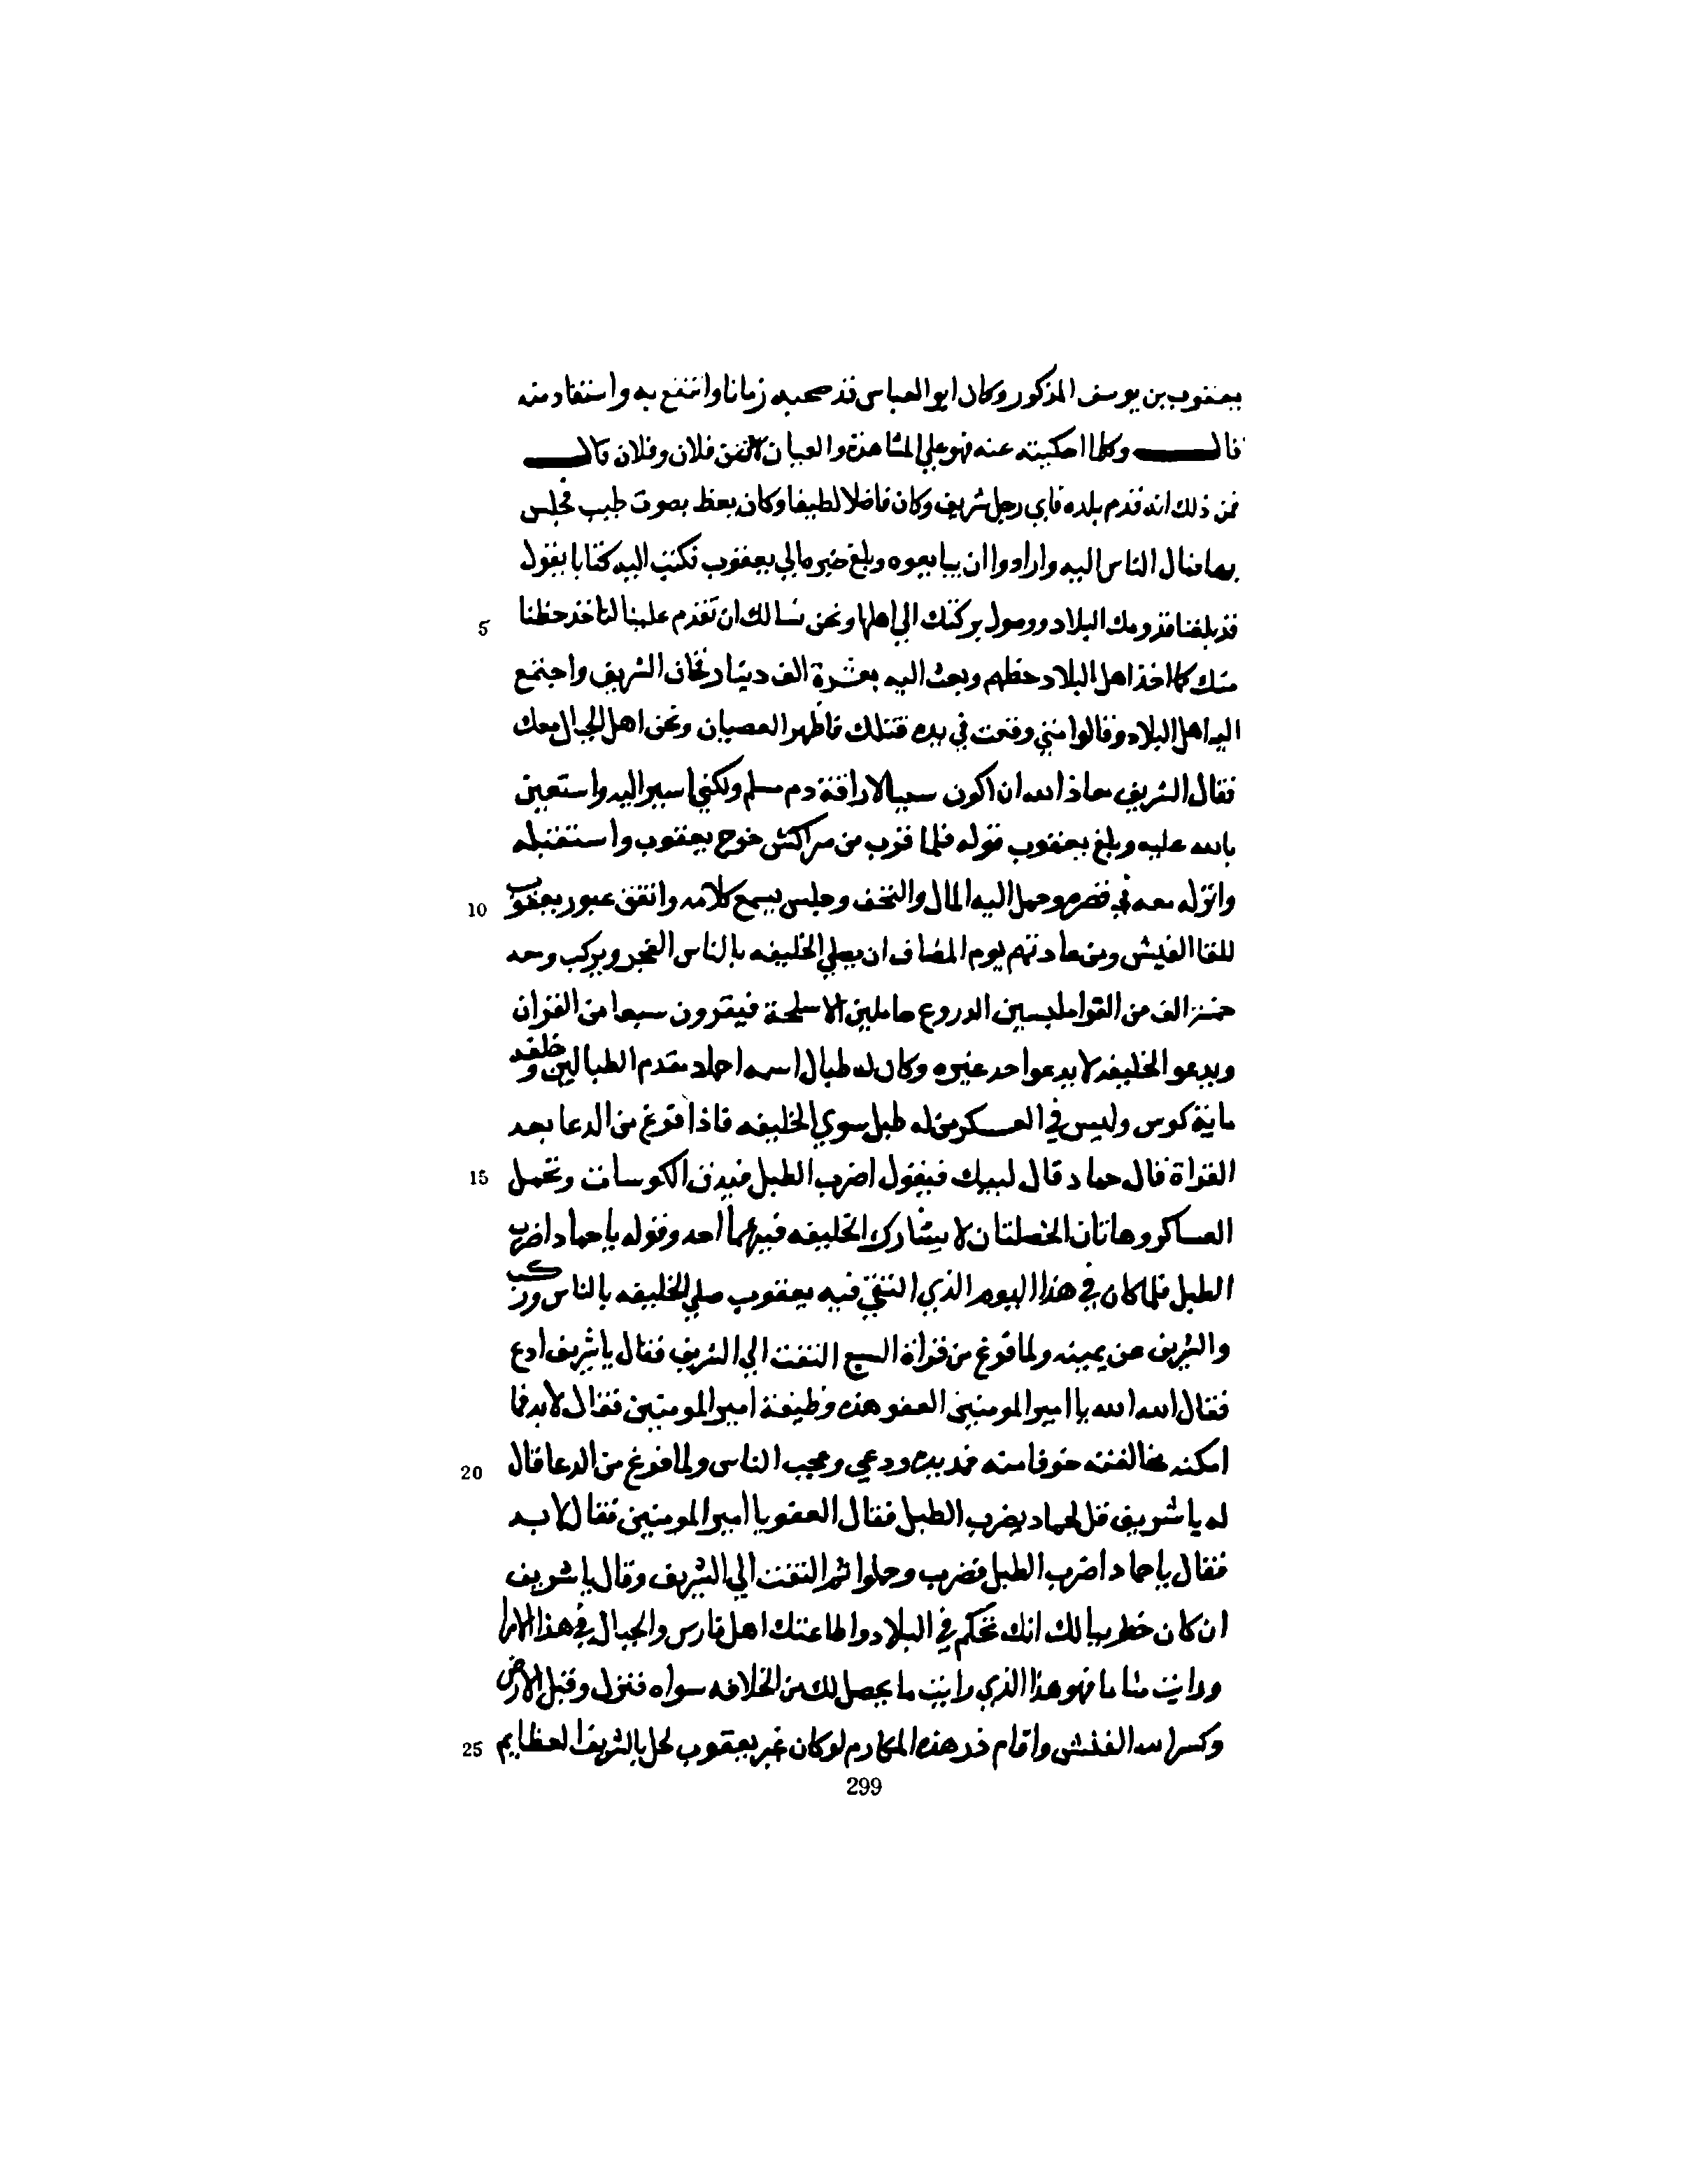 يعقوب بن يوسف المذكور وكان ابو العباس قد صحبه زمانا وانتفع به واستفاد منه
قال وكلما احكيته عنه فهو علي المشاهدة والعيان لا عن فلان وفلان قال
فمن ذلك انه قدم بلده فاي رجل شريف وكان فاضلا لطيفا وكان يعظ بصوت طيب فجلس
بها فمال الناس اليه وارادوا ان يبايعوه وبلغ خبره الي يعقوب فكتب اليه كتابا يقول
قد بلغنا قدومك البلاد ووصول بركتك الي اهلها ونحن نسالك ان تقدم علينا لناخذ حظنا
5
منك كما اخذ اهل البلاد حظهم وبعث اليه بعشرة الف دينار فخاف الشريف واجتمع
اليه اهل البلاد وقالوا متي وقعت في يده قتلك فاظهر العصيان ونحن اهل الجبال معك
فقال الشريف معاذ الله ان اكون سببا لاراقة دم مسلم ولكني اسير اليه واستعين
بالله عليه وبلغ يعقوب قوله فلما قرب من مراكش خرج يعقوب واستقبله
وانزله معه في قصره وحمل اليه المال والتحف وجلس يسمع كلامه واتفق عبور يعقوب
10
للقا الفنش ومن عادتهم يوم المصاف ان يصلي الخليفه بالناس الفجر ويركب وحده
خمسة الف من القرا ملبسين الدروع حاملين الاسلحة فيقرون سبعا من القران
ويدعو الخليفه لا يدعوا احد غيره وكان له طبال اسمه احماد مقدم الطبالين وخلفه
ماية كوس وليس في العسكر من له طبل سوي الخليفه فاذا فرغ من الدعا بعد
القراة قال حماد قال لبيك فيقول اضرب الطبل فيدق الكوسات وتحمل
15
العساكر وهاتان الخصلتان لا يشارك الخليفه فيهما احد وقوله يا حماد اضرب
الطبل فلما كان في هذا اليوم الذي التقي فيه يعقوب صلي الخليفه بالناس وركب
والشريف عن يمينه ولما فرغ من قراة السبع التفت الي الشريف فقال يا شريف ادع
فقال الله الله يا امير المومنين العفو هذه وظيفة امير المومنين فقال لا بد فما
امكنه مخالفته خوفا منه فمد يده ودعي وعجب الناس ولما فرغ من الدعا قال
20
له يا شريف قل لحماد يضرب الطبل فقال العفو يا امير المومنين فقال لا بد
فقال يا حماد اضرب الطبل فضرب وحملوا ثم التفت الي الشريف وقال يا شريف
ان كان خطر ببالك انك تحكم في البلاد واطاعتك اهل فارس والجبال في هذا الامر
ورايت مناما فهو هذا الذي رايت ما يحصل لك من الخلافه سواه فنزل وقبل الارض
وكسر الله الفنش واقام هذه المكارم لو كان غير يعقوب لحل بالشريف العظايم
25
299